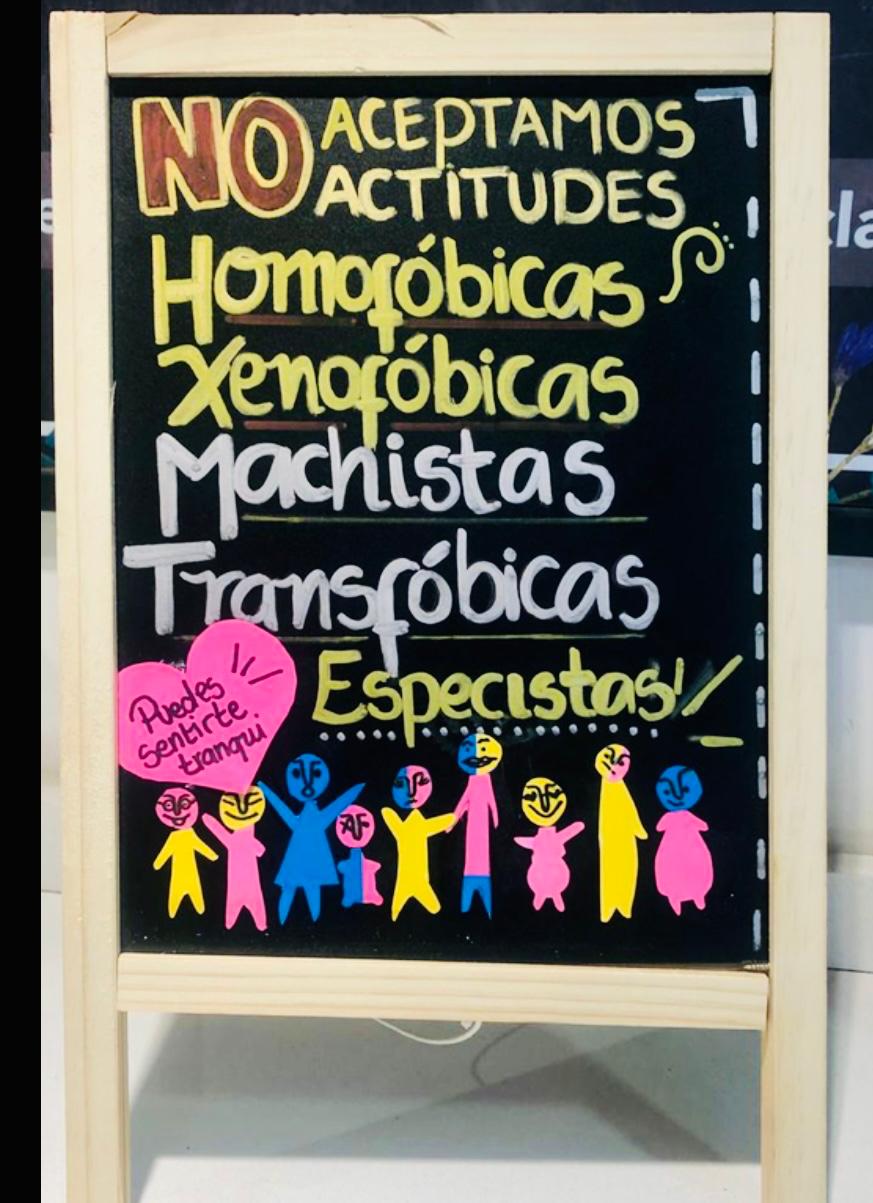 NO ACEPTAMOS
ACTITUDES
Homofóbicas
Xenofóbicas
Machistas
Transfóbicas
Especistas
Puedes
sentirte
tranqui